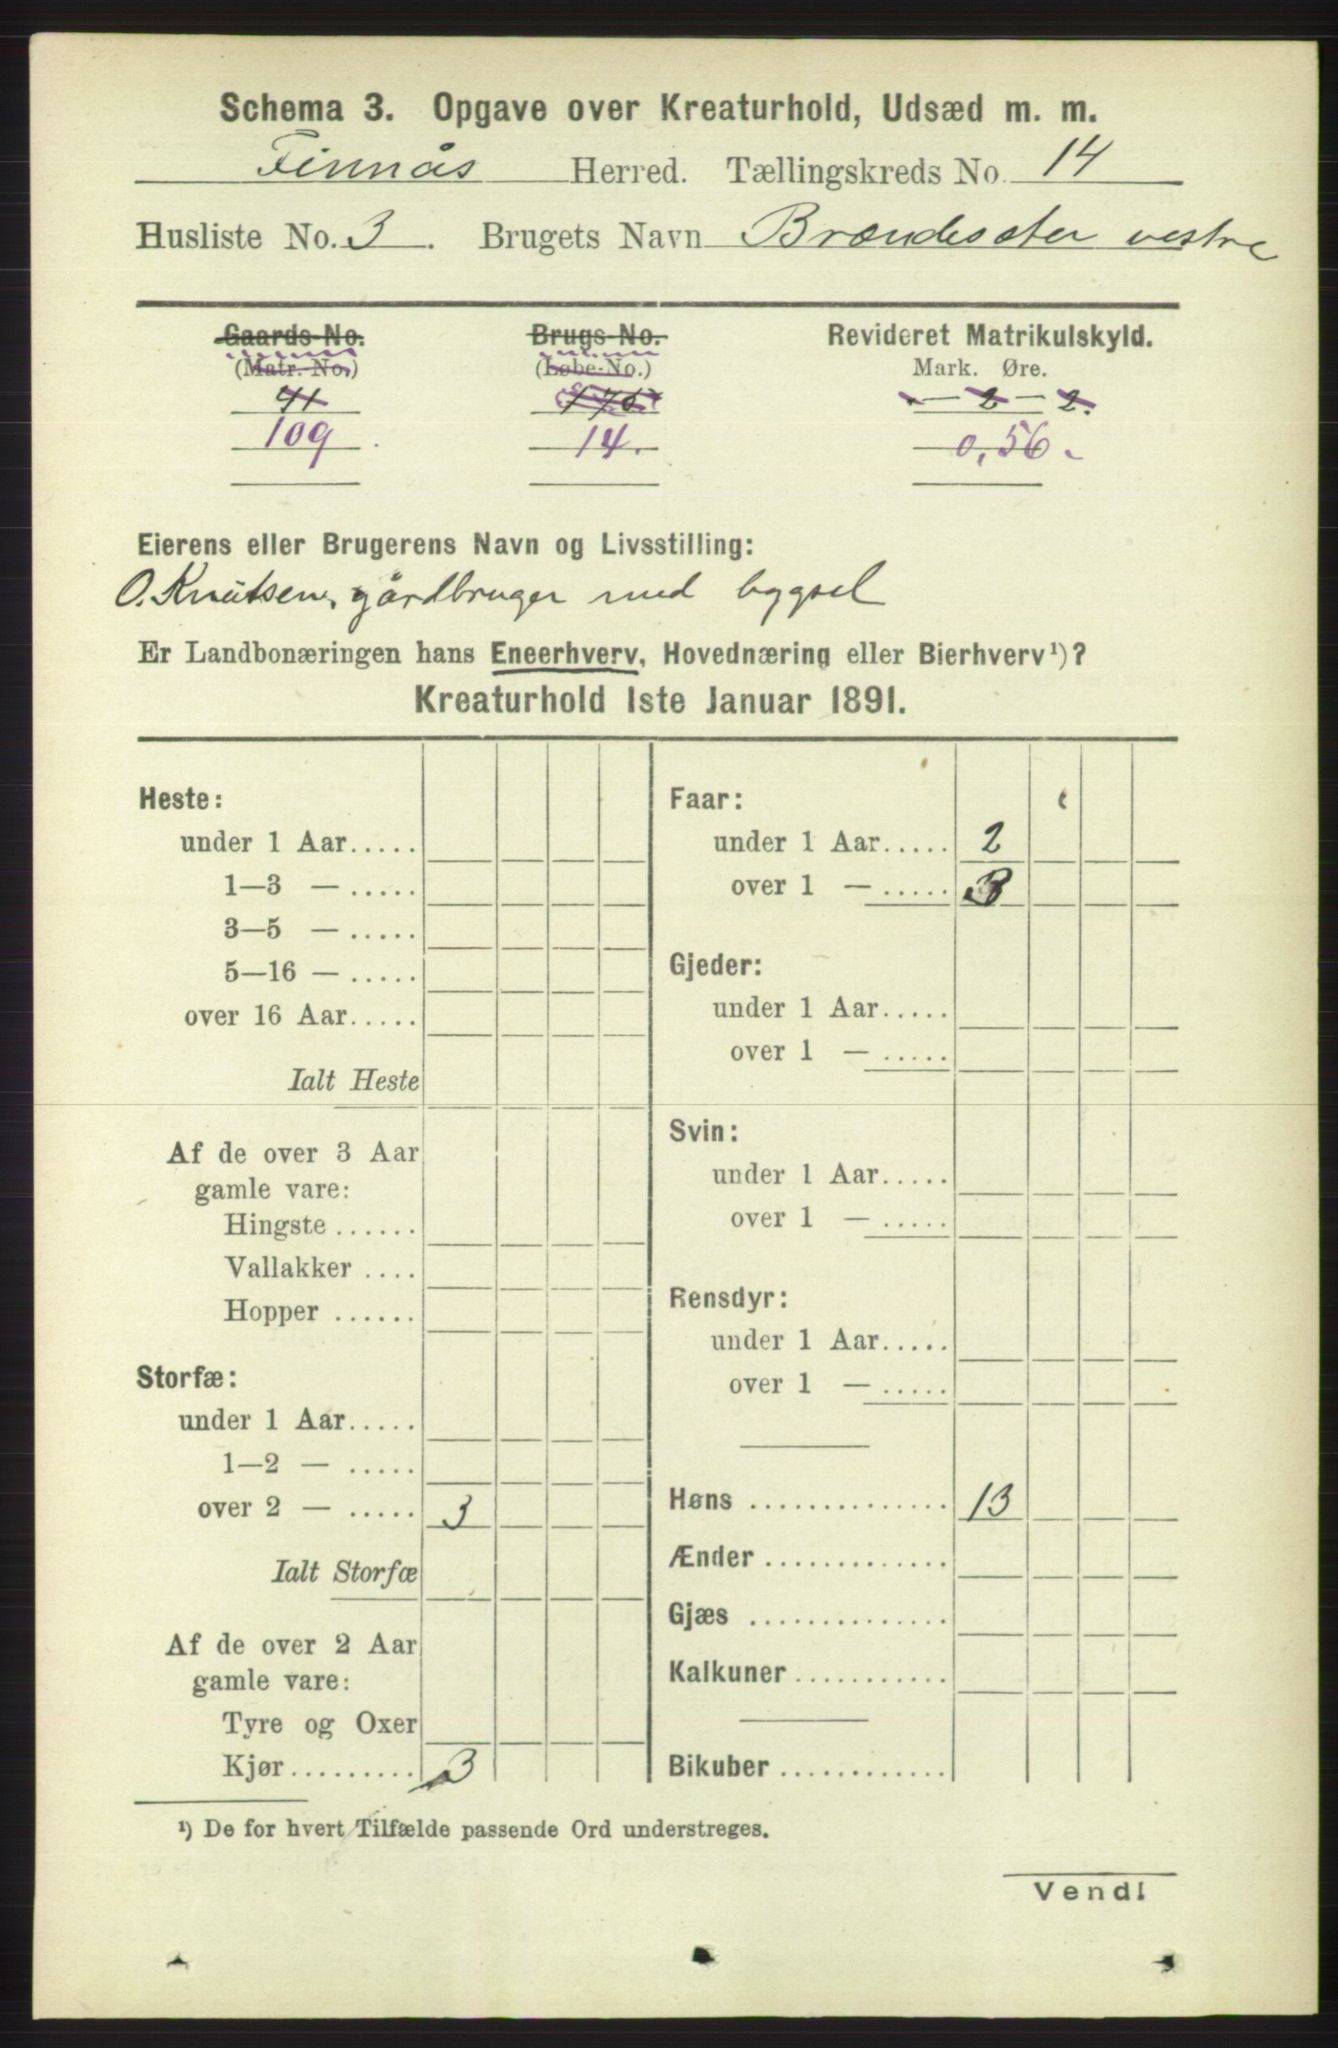 Schema 3. Opgave over Kreaturhold, Udsæd m. m.
Finnås Herred. Tællingskreds No. 14
Husliste No. 3. Brugets Navn Brændesæter vestre
Gaards-No. Brugs-No. Revideret Matrikulskyld.
(Matr.-No.) (Løbe-No.) Mark. Øre.
41 - 2 - 2.
109 14. 0,56.
Eierens eller Brugerens Navn og Livsstilling:
O. Knutsen, gårdbruger med bygsel
Er Landbonæringen hans Eneerhverv, Hovednæring eller Bierhverv¹)?
Kreaturhold 1ste Januar 1891.
Heste:
under 1 Aar.....
1—3 — .....
3—5 — .....
5—16 — .....
over 16 Aar.....
Ialt Heste
Af de over 3 Aar
gamle vare:
Hingste ......
Vallakker ....
Hopper ......
Storfæ:
under 1 Aar.....
1—2 — .....
over 2 — ..... 3
Ialt Storfæ
Af de over 2 Aar
gamle vare:
Tyre og Oxer
Kjør.......... 3
Faar:
under 1 Aar..... 2
over 1 — ..... 3
Gjeder:
under 1 Aar.....
over 1 — .....
Svin:
under 1 Aar.....
over 1 — .....
Rensdyr:
under 1 Aar.....
over 1 — .....
Høns .............. 13
Ænder .............
Gjæs ..............
Kalkuner ...........
Bikuber ............
¹) De for hvert Tilfælde passende Ord understreges.
Vend!